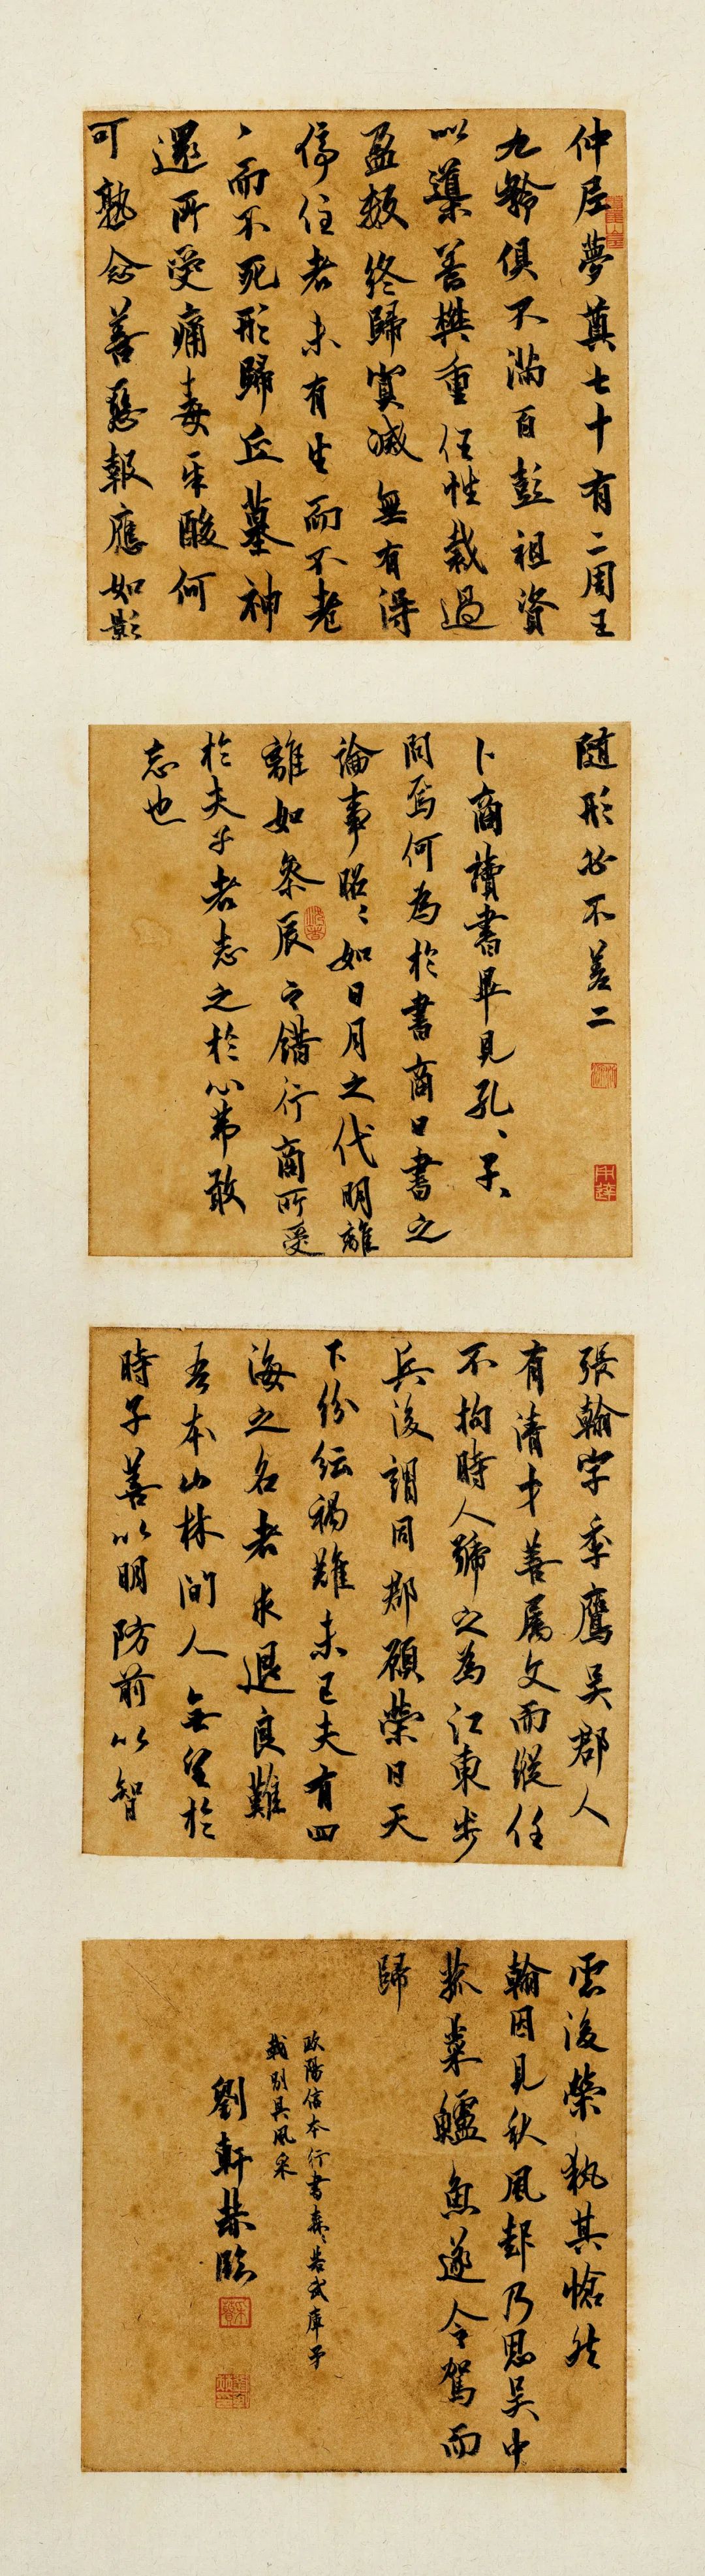 仲尼夢奠七十有二周王
九齡俱不滿百彭祖資
以導養樊重任性裁過
盈數終歸冥滅無有得
停住者未有生而不老
〻而不死形歸丘墓神
還所受痛毒辛酸何
可熟念善惡報應如影
隨形必不差二
卜商讀書畢見孔〻子〻
問焉何為於書商曰書之
論事昭〻如日月之代明離
離如參辰之錯行商所受
於夫子者志之於心弗敢
忘也
張翰字季鷹吳郡人
有清才善屬文而縱任
不拘時人號之為江東步
兵後謂同郡顧榮曰天
下紛紜禍難未已夫有四
海之名者求退良難
吾本山林間人無望於
時子善以明防前以智
慮後榮執其愴然
翰因見秋風起乃思吳中
菰菜鱸魚遂令駕而
歸
歐陽信本行書森〻若武庫矛
戟別具風采
劉軒恭臨